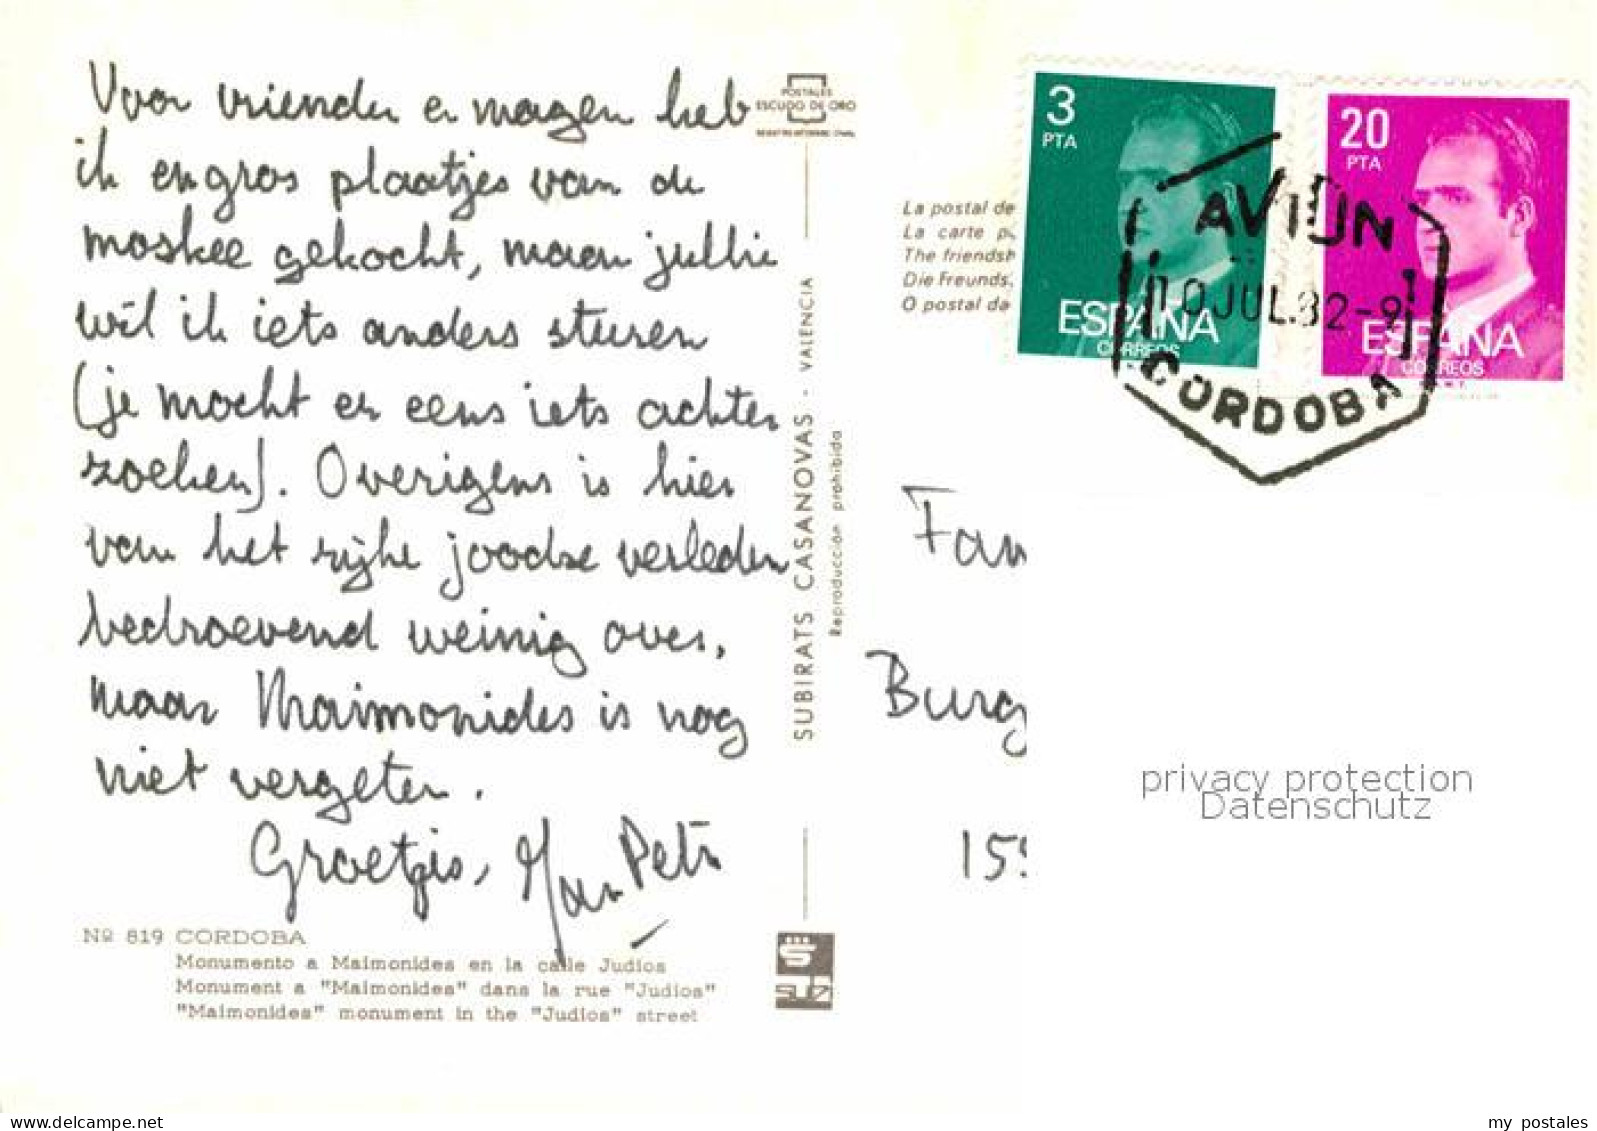 Voor vrienden en magen heb
ik engros plaatjes van de
moskee gekocht, maar jullie
wil ik iets anders sturen
(je mocht er eens iets achter
zoeken). Overigens is hier
van het rijke joodse verleden
bedroevend weinig over,
maar Maimonides is nog
niet vergeten.
Groetjes, Jan Peter
Nº 819 CORDOBA
Monumento a Maimonides en la calle Judios
Monument a "Maimonides" dans la rue "Judios"
"Maimonides" monument in the "Judios" street
POSTALES
ESCUDO DE ORO
SUBIRATS CASANOVAS - VALENCIA
Reproducción prohibida
La postal de
La carte p
The friendsh
Die Freunds,
O postal da
3
PTA
ESPAÑA
CORREOS
20
PTA
ESPAÑA
CORREOS
AVION
10 JUL.82-9
CORDOBA
Fam
Burg
159
privacy protection
Datenschutz
delcampe.net
my_postales